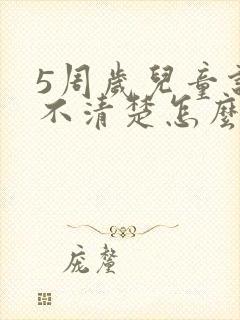 5周歲兒童說
不清楚怎麼
庞聲